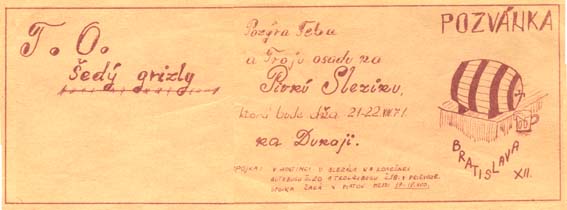 T. O.
šedý grizly
Pozýva Teba
a Tvoju osadu na
Pivnú Slezinu,
ktorá bude dňa 21-22.VIII.71.
na Dunaji.
SPOJKA: V HOSTINCI U SLEZÁKA NA KONEČNEJ
AUTOBUSU Č. 20, A TROLEJBUSU
SPOJKA ČAKÁ V PIATOK MEDZI 17-18. HOD.
POZVÁNKA
BRATISLAVA
XII.